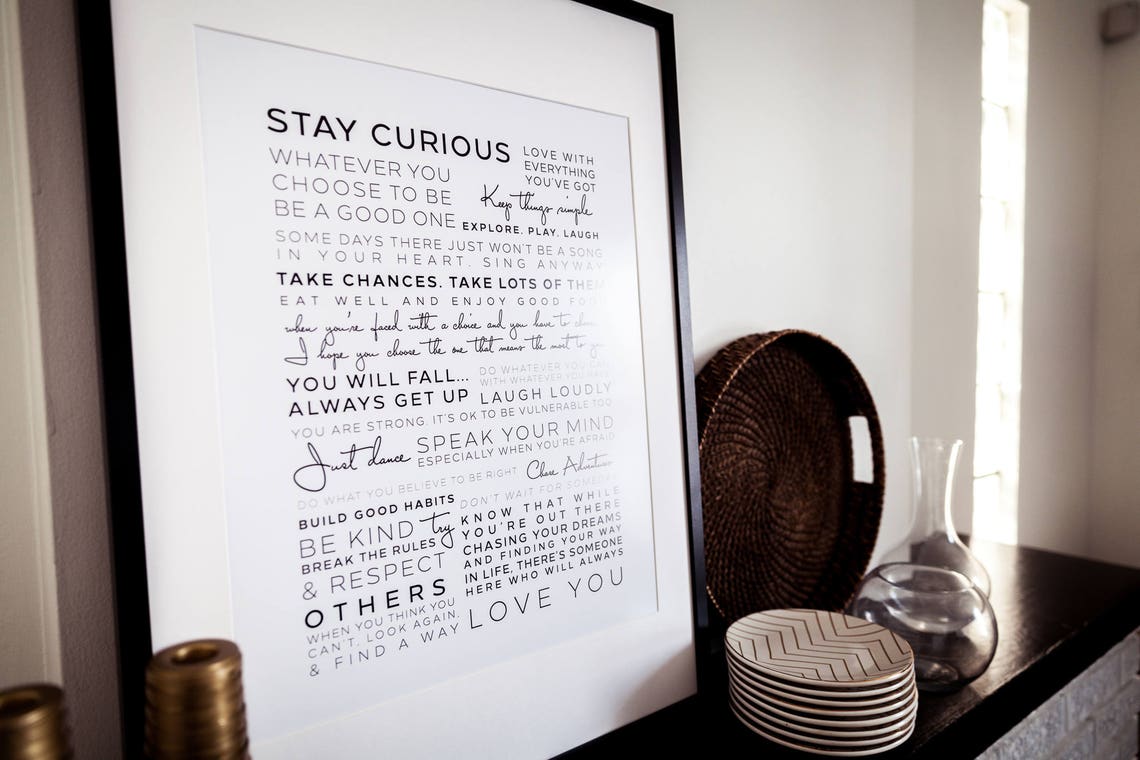 STAY CURIOUS
LOVE WITH
EVERYTHING
YOU'VE GOT
WHATEVER YOU
CHOOSE TO BE
BE A GOOD ONE
Keep things simple
EXPLORE. PLAY. LAUGH
SOME DAYS THERE JUST WON'T BE A SONG
IN YOUR HEART. SING ANYWAY
TAKE CHANCES. TAKE LOTS OF THEM
EAT WELL AND ENJOY GOOD FOOD
when you're faced with a choice and you have to choose
I hope you choose the one that means the most to you
YOU WILL FALL...
ALWAYS GET UP
DO WHATEVER YOU CAN
WITH WHATEVER YOU HAVE
LAUGH LOUDLY
YOU ARE STRONG. IT'S OK TO BE VULNERABLE TOO
Just dance
SPEAK YOUR MIND
ESPECIALLY WHEN YOU'RE AFRAID
DO WHAT YOU BELIEVE TO BE RIGHT
Chase Adventures
BUILD GOOD HABITS
BE KIND try
BREAK THE RULES
& RESPECT
OTHERS
WHEN YOU THINK YOU
CAN'T, LOOK AGAIN,
& FIND A WAY
DON'T WAIT FOR SOMEONE
KNOW THAT WHILE
YOU'RE OUT THERE
CHASING YOUR DREAMS
AND FINDING YOUR WAY
IN LIFE, THERE'S SOMEONE
HERE WHO WILL ALWAYS
LOVE YOU